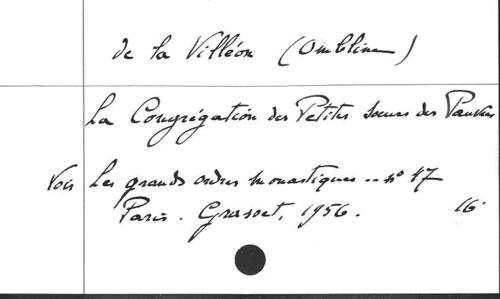 de la Villéon (Ombline)
La Congrégation des Petites Soeurs des Pauvres
Voir Les grands ordres monastiques .. n° 17
Paris. Grasset, 1956. 16°